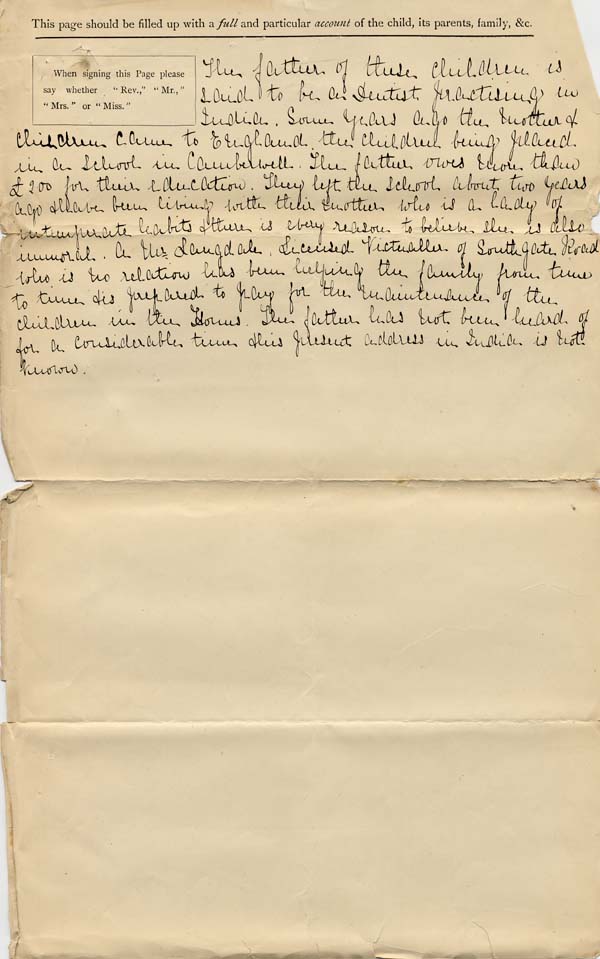 This page should be filled up with a full and particular account of the child, its parents, family, &c.
When signing this Page please
say whether "Rev.," "Mr.,"
"Mrs." or "Miss."
The father of these children is
said to be a Dentist practising in
India. Some years ago the mother &
children came to England, the children being placed
in a School in Camberwell. The father owes more than
£200 for their education. They left the School about two years
ago & have been living with their mother who is a lady of
intemperate habits & there is every reason to believe she is also
immoral. A Mr. Langdale, Licensed Victualler of Southgate Road
who is no relation has been helping the family from time
to time & is prepared to pay for the maintenance of the
children in the Homes. The father has not been heard of
for a considerable time & his present address in India is not
known.